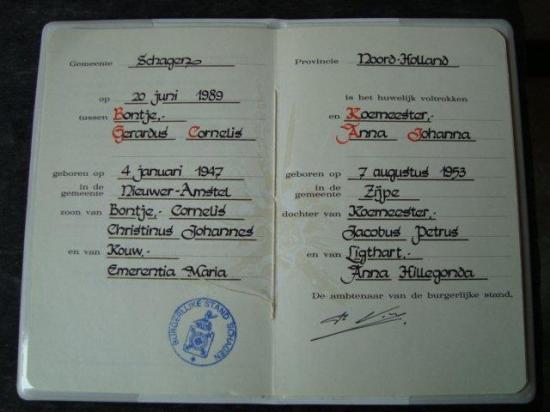 Gemeente Schagen
op 20 juni 1989
tussen Bontje,-
Gerardus Cornelis
geboren op 4 januari 1947
in de gemeente Nieuwer-Amstel
zoon van Bontje,- Cornelis
Christinus Johannes
en van Kouw,-
Emerentia Maria
BURGERLIJKE STAND SCHAGEN
Provincie Noord-Holland
is het huwelijk voltrokken
en Koemeester,-
Anna Johanna
geboren op 7 augustus 1953
in de gemeente Zijpe
dochter van Koemeester,-
Jacobus Petrus
en van Ligthart,-
Anna Hillegonda
De ambtenaar van de burgerlijke stand,